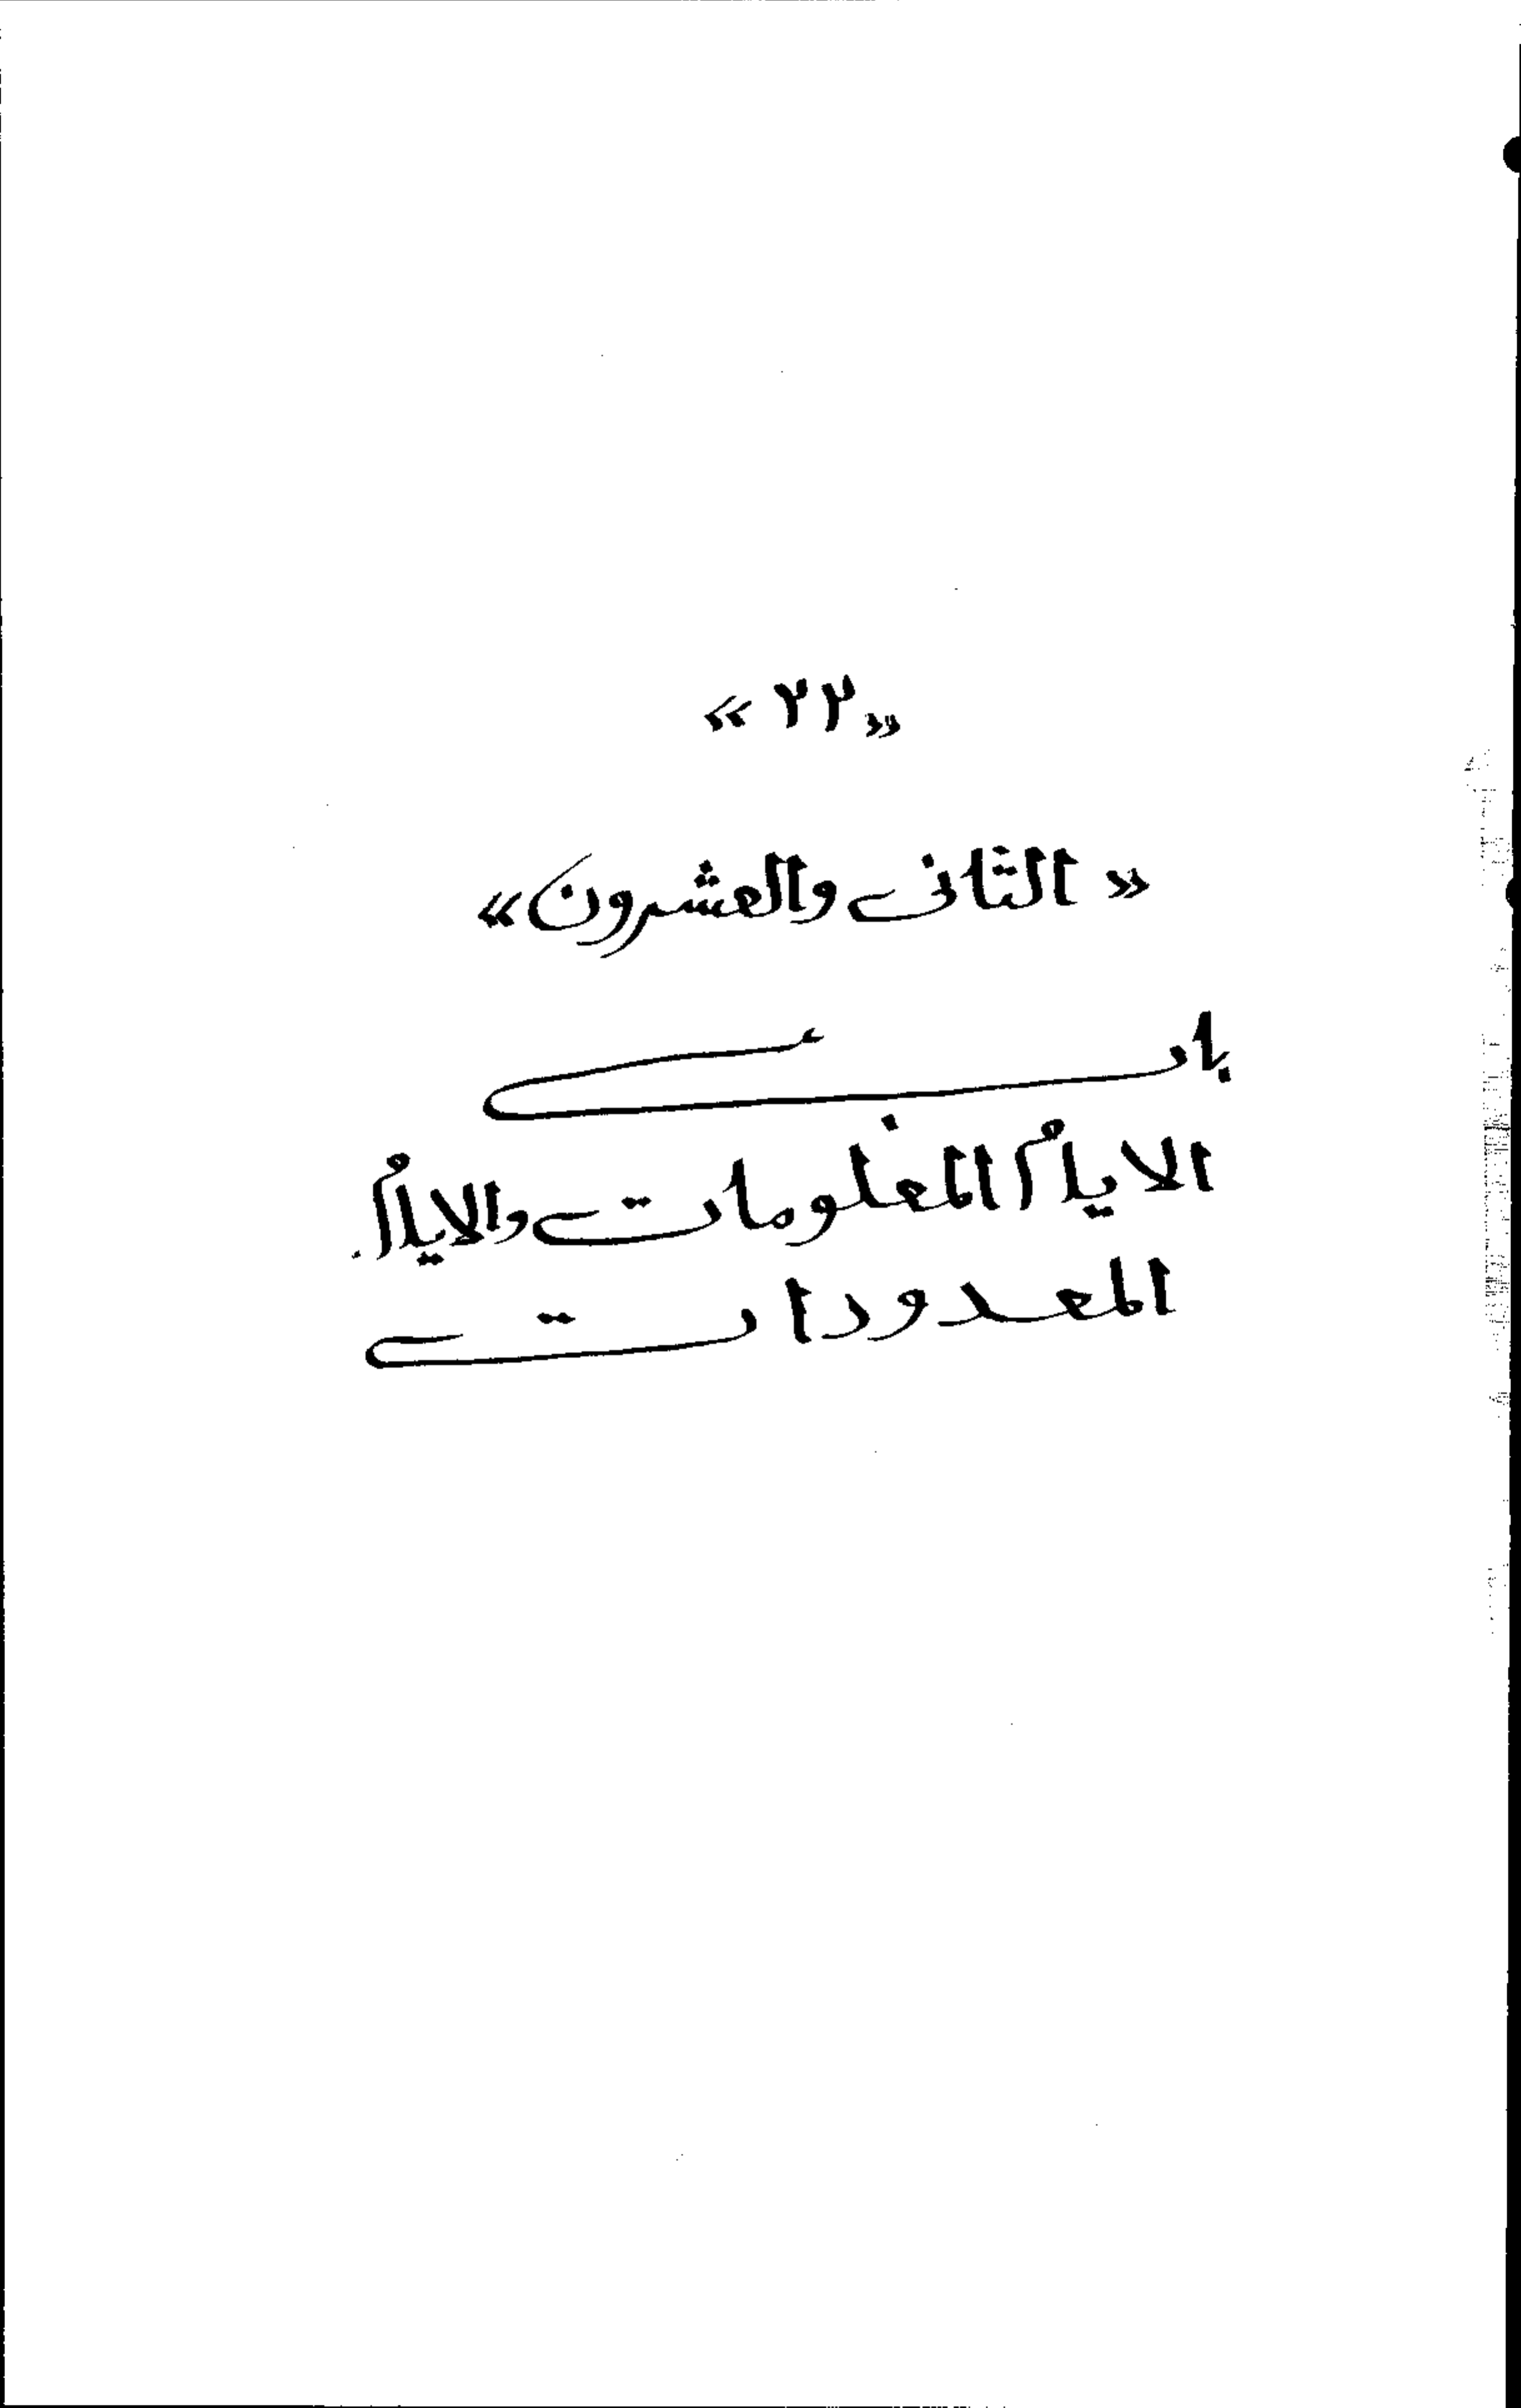 «٢٢»
«الثانى والعشرون»
باب
الايام المعلومات والايام
المعدودات